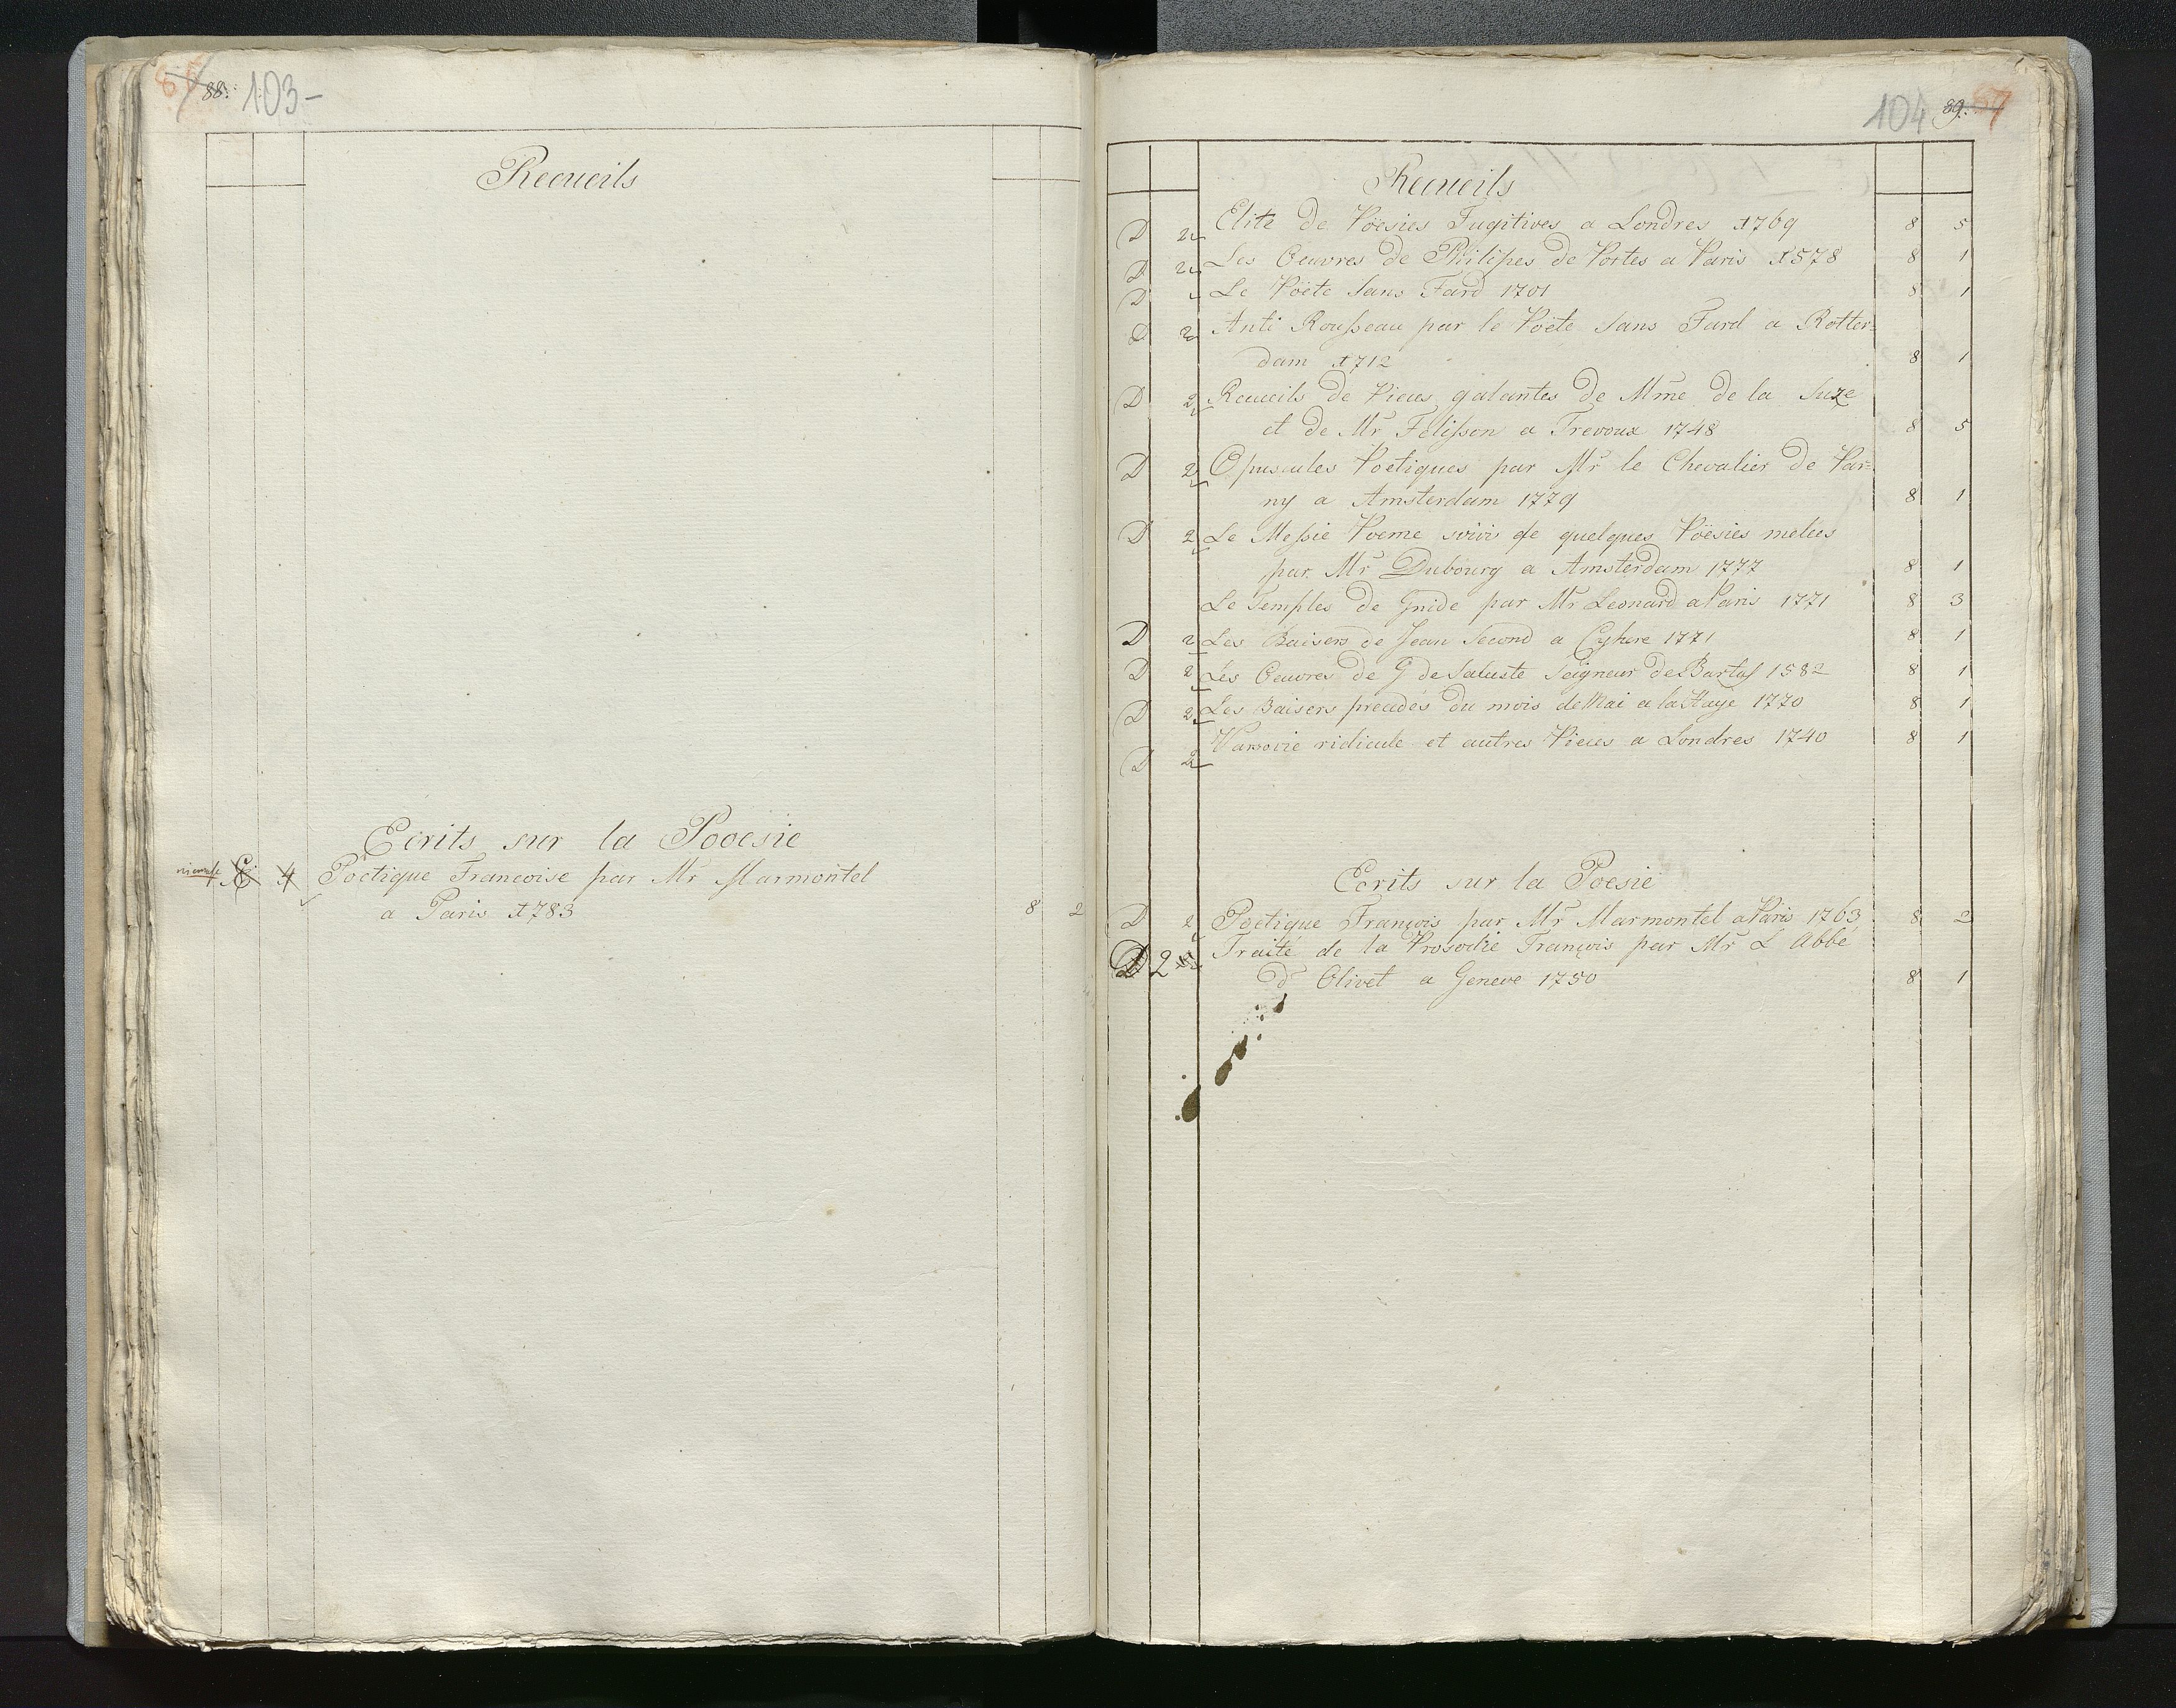 88. 103-
Recueils
Ecrits sur la Pooesie
C 4 Poëtique Francoise par Mr Marmontel
a Paris 1783 8 2
104 89.
Recueils
D 2 Elite de Poësies Fugitives a Londres 1769 8 5
D 2 Les Oeuvres de Philipes de Portes a Paris 1578 8 1
D Le Poëte Sans Fard 1701 8 1
D 2 Anti Rousseau par le Poëte Sans Fard a Rotter=
dam 1712 8 1
D 2 Recueils de Pieces galantes de Mme de la Suze
et de Mr Felisson a Trevoux 1748 8 5
D 2 Opuscules Poetiques par Mr le Chevalier de Par=
ny a Amsterdam 1779 8 1
D 2 Le Messie Poeme suivi de quelques Poësies melées
par Mr Dubourg a Amsterdam 1777 8 1
Le Temples de Gnide par Mr Leonard a Paris 1771 8 3
D 2 Les Baisers de Jean Second a Cythere 1771 8 1
D 2 Les Oeuvres de G de Saluste Seigneur de Bartas 1582 8 1
D 2 Les Baisers precédés du mois de Mai a la Haye 1770 8 1
D 2 Varsovie ridicule et autres Pieces a Londres 1740 8 1
Ecrits sur la Poesie
D 2 Poetique François par Mr Marmontel a Paris 1763 8 2
D 2 Traité de la Prosodie François par Mr L Abbé
d'Olivet a Geneve 1750 8 1